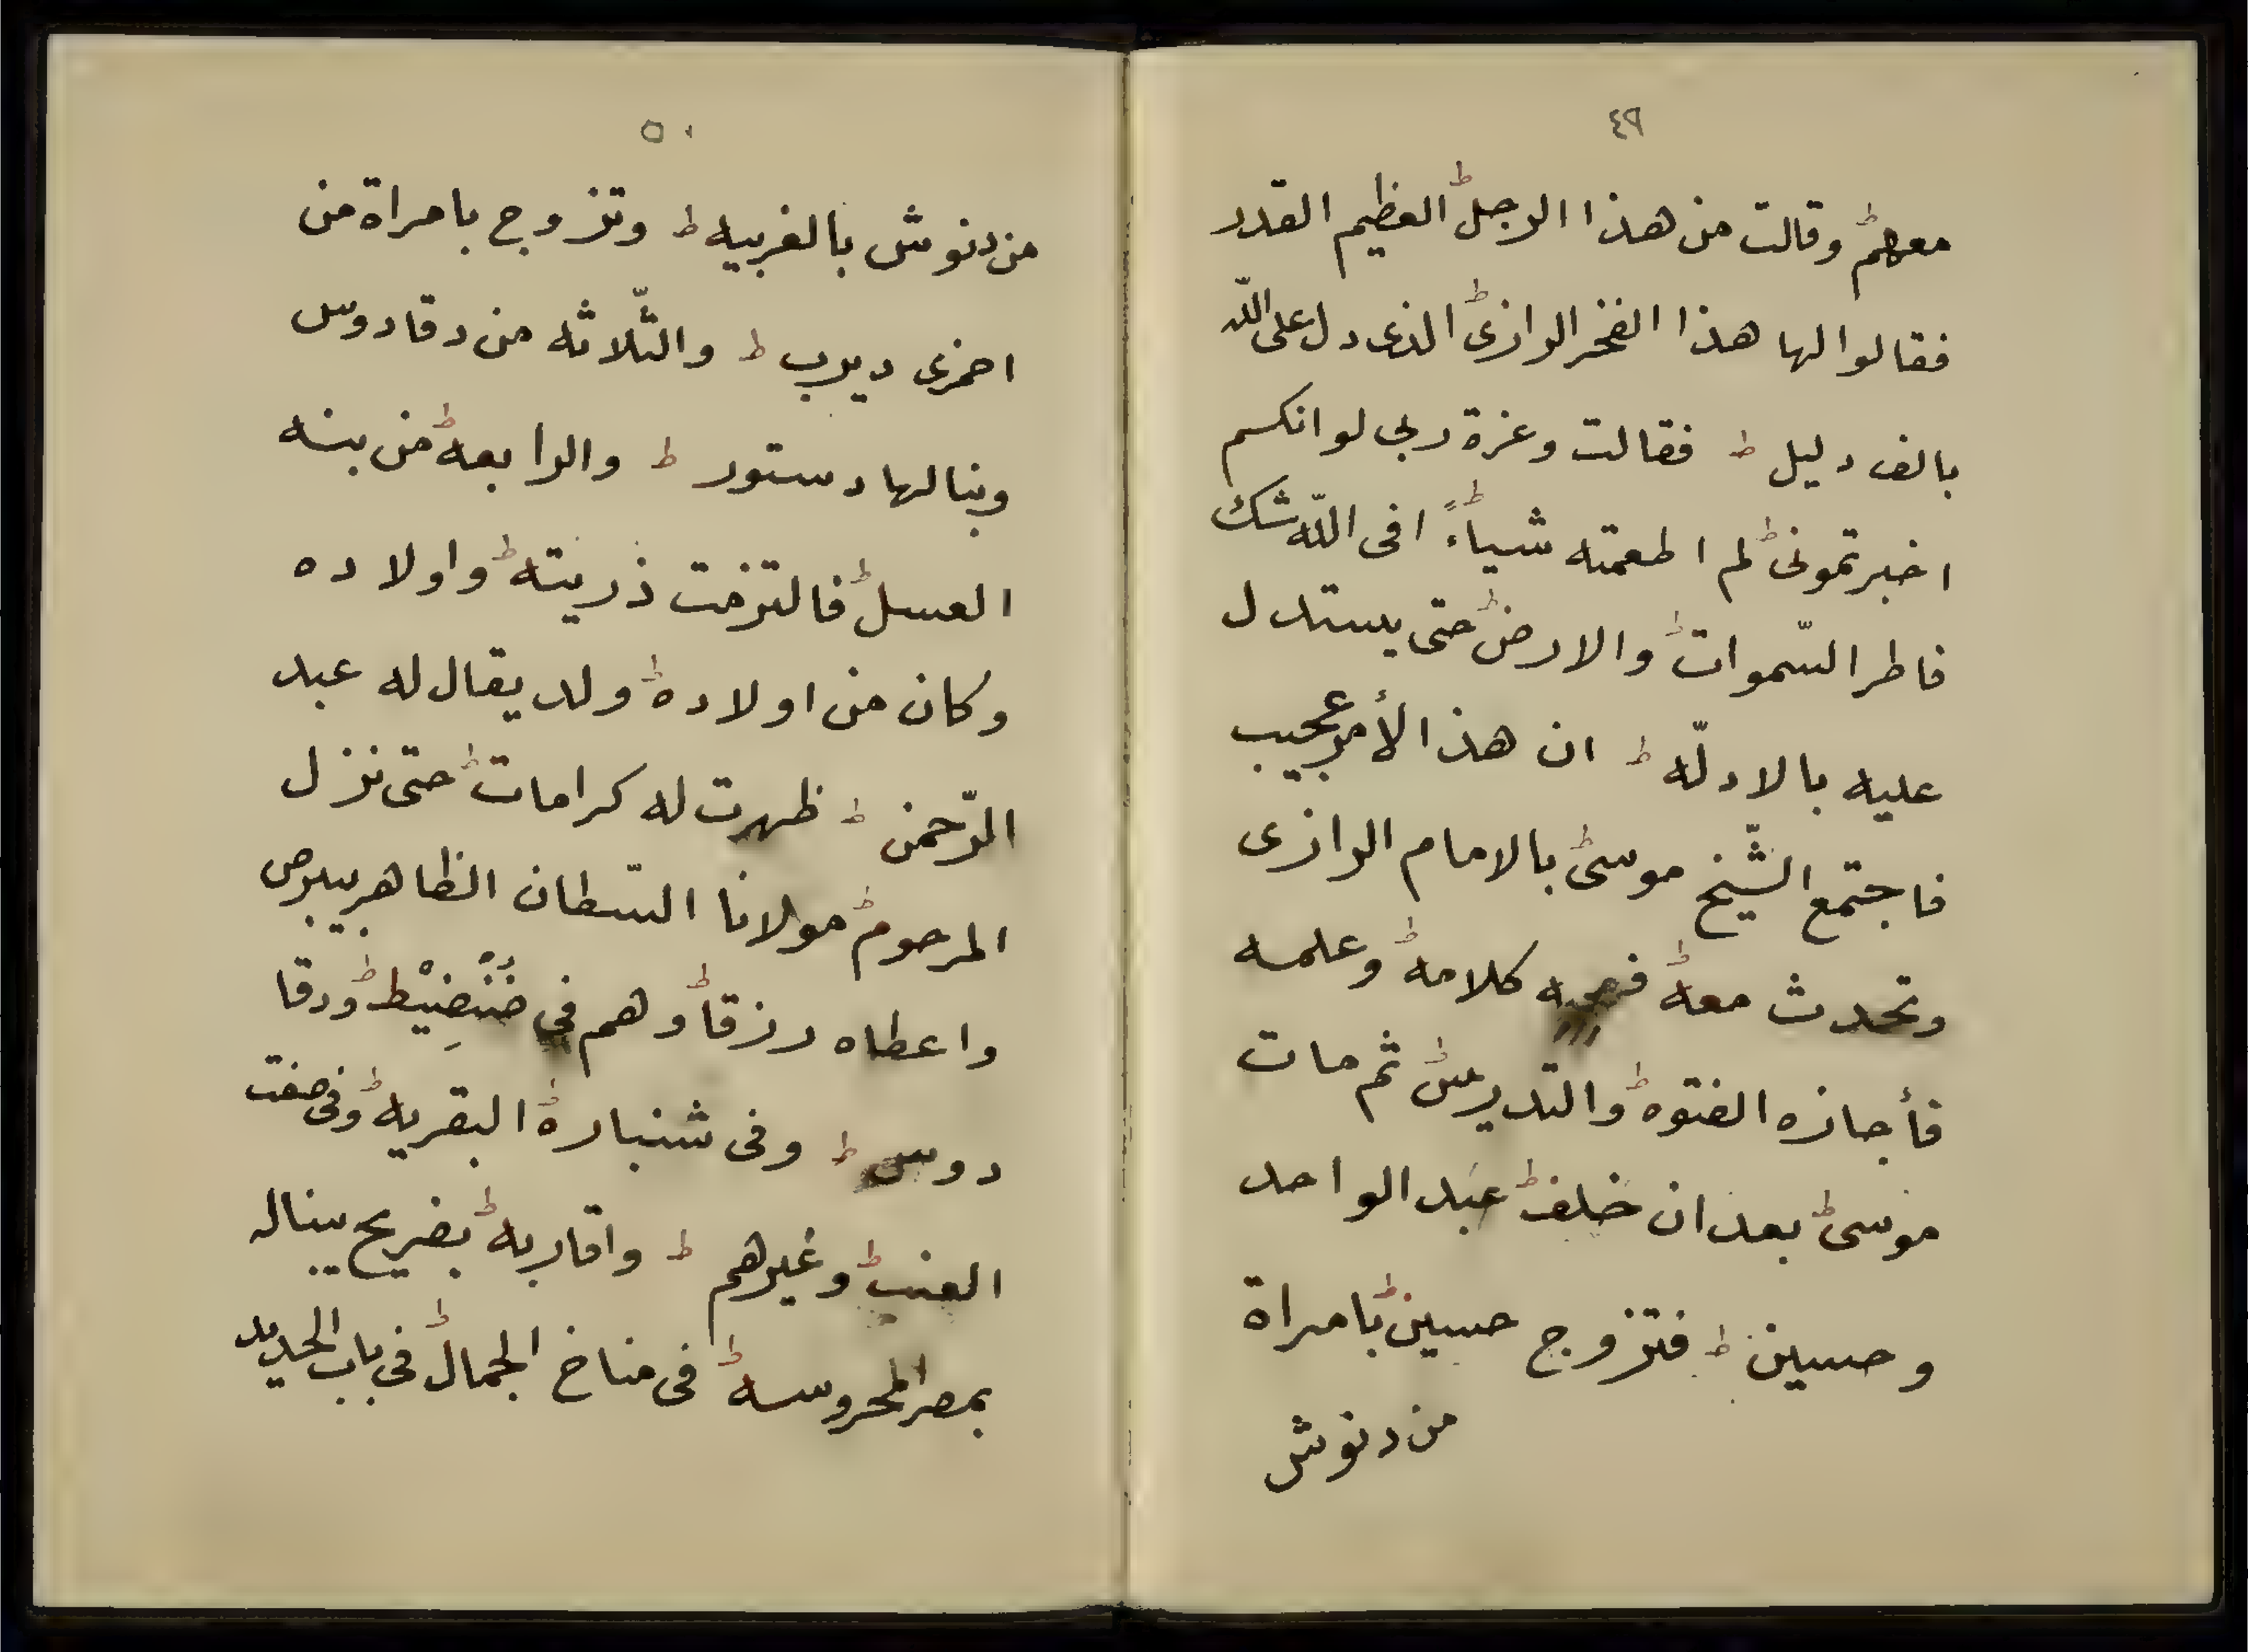 ٤٩
معهم ط وقالت من هذا الرجل ط العظيم القدر
فقالوا لها هذا الفخر الرازى ط الذى دل على الله
بالف دليل ط فقالت وعزة ربى لو انكم
اخبرتمونى ط لم اطعمته شيأً ط افى الله شك
فاطر السّموات ط والارض ط حتى يستدل
عليه بالادلّه ط ان هذا الأمر عجيب
فاجتمع الشّيخ موسى ط بالامام الرازى
وتحدث معه ط كلامه ط وعلمه
فأجازه الفتوه ط والتدريس ط ثم مات
موسى ط بعد ان خلف ط عبد الواحد
وحسين ط فتزوج حسين ط بامراة
من دنوش
٥٠
من دنوش بالغربيه ط وتزوج بامراة من
اخرى ديرب ط والثّلاثه من دقادوس
وبنا لها دستور ط والرابعه ط من بنه
العسل ط فالتزمت ذريته ط واولاده
وكان من اولاده ط ولد يقال له عبد
الرّحمن ط ظهرت له كرامات ط حتى نزل
المرحوم ط مولانا السّطان الظاهر بيبرص
واعطاه رزقا ط وهم في ط ودقا
دوس ط وفى شنبارة ط البقريه ط وفى صفت
العنب ط وغيرهم ط واقاربه ط بضريح يبناله
بمصر المحروسه ط فى مناخ الجمال ط فى باب الحديد